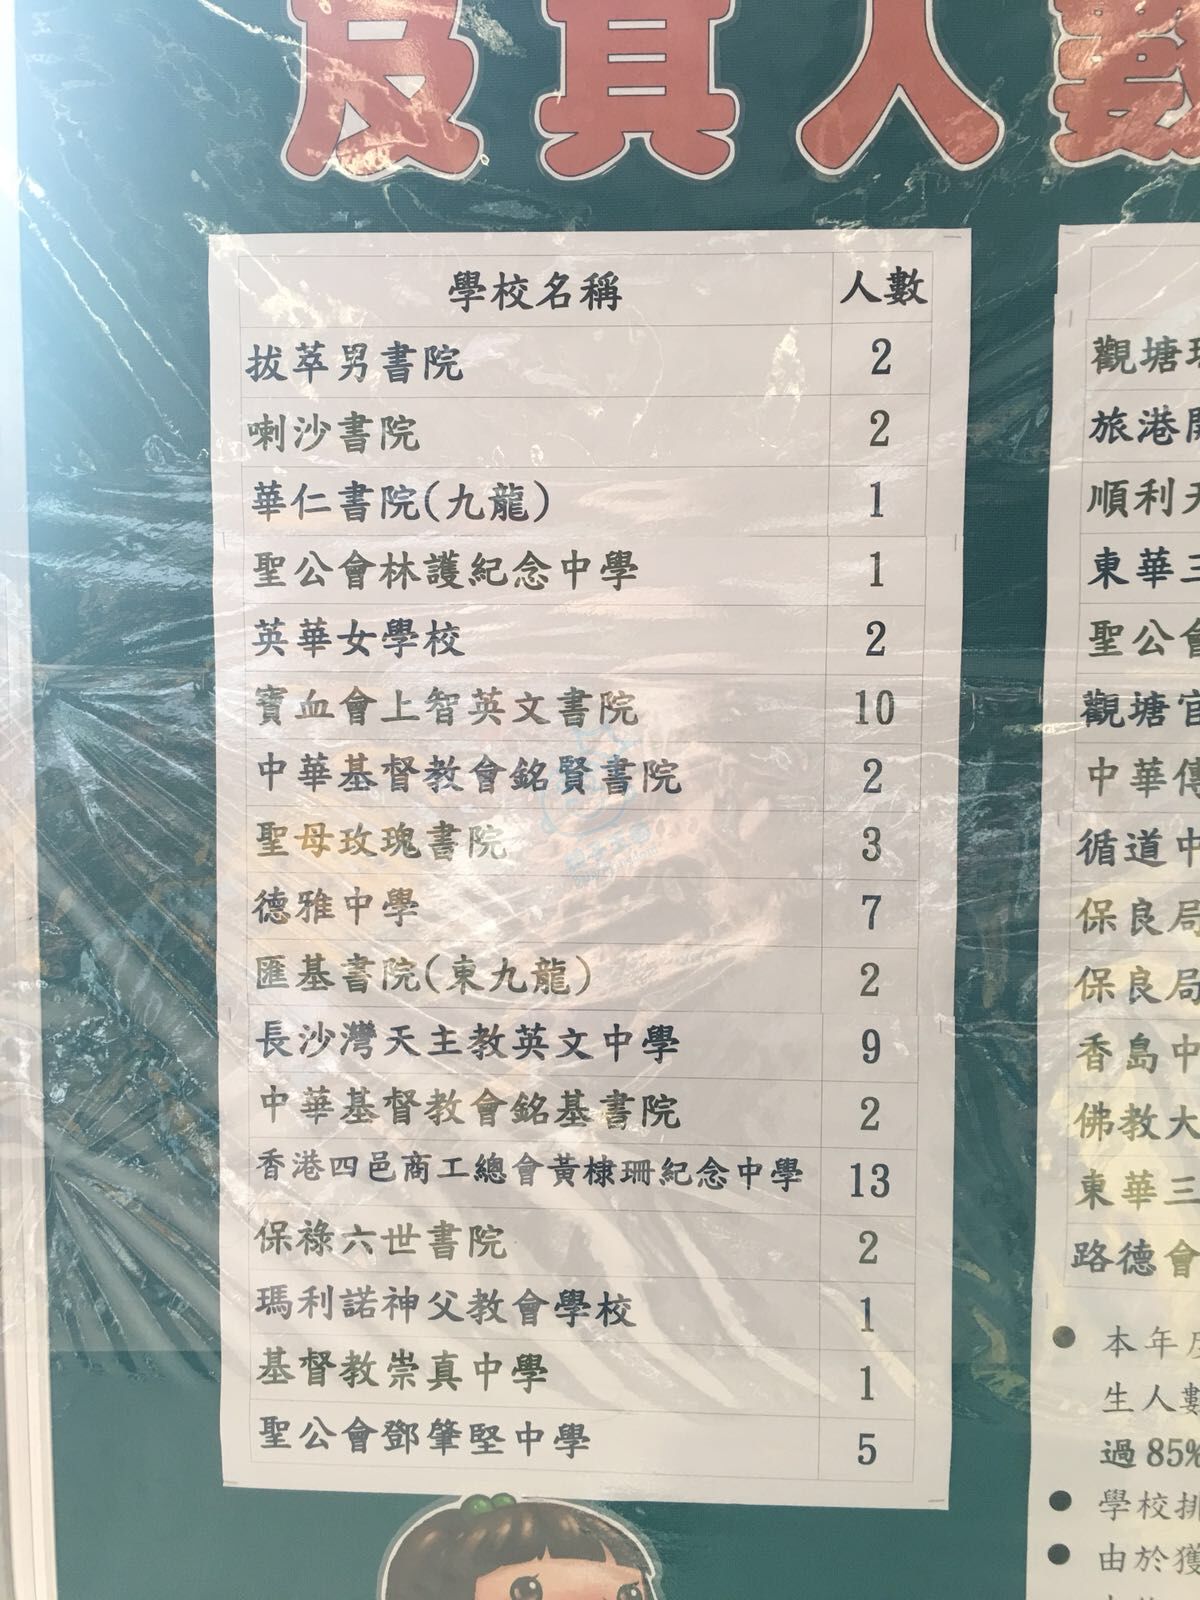 學校名稱 人數
拔萃男書院 2
喇沙書院 2
華仁書院(九龍) 1
聖公會林護紀念中學 1
英華女學校 2
寶血會上智英文書院 10
中華基督教會銘賢書院 2
聖母玫瑰書院 3
德雅中學 7
匯基書院(東九龍) 2
長沙灣天主教英文中學 9
中華基督教會銘基書院 2
香港四邑商工總會黃棣珊紀念中學 13
保祿六世書院 2
瑪利諾神父教會學校 1
基督教崇真中學 1
聖公會鄧肇堅中學 5
觀塘
旅港
順利天
東華三
聖公會
觀塘官
中華傳
循道中
保良局
保良局
香島中
佛教大
東華三
路德會
● 本年度
生人數
過85%
● 學校排
● 由於獲